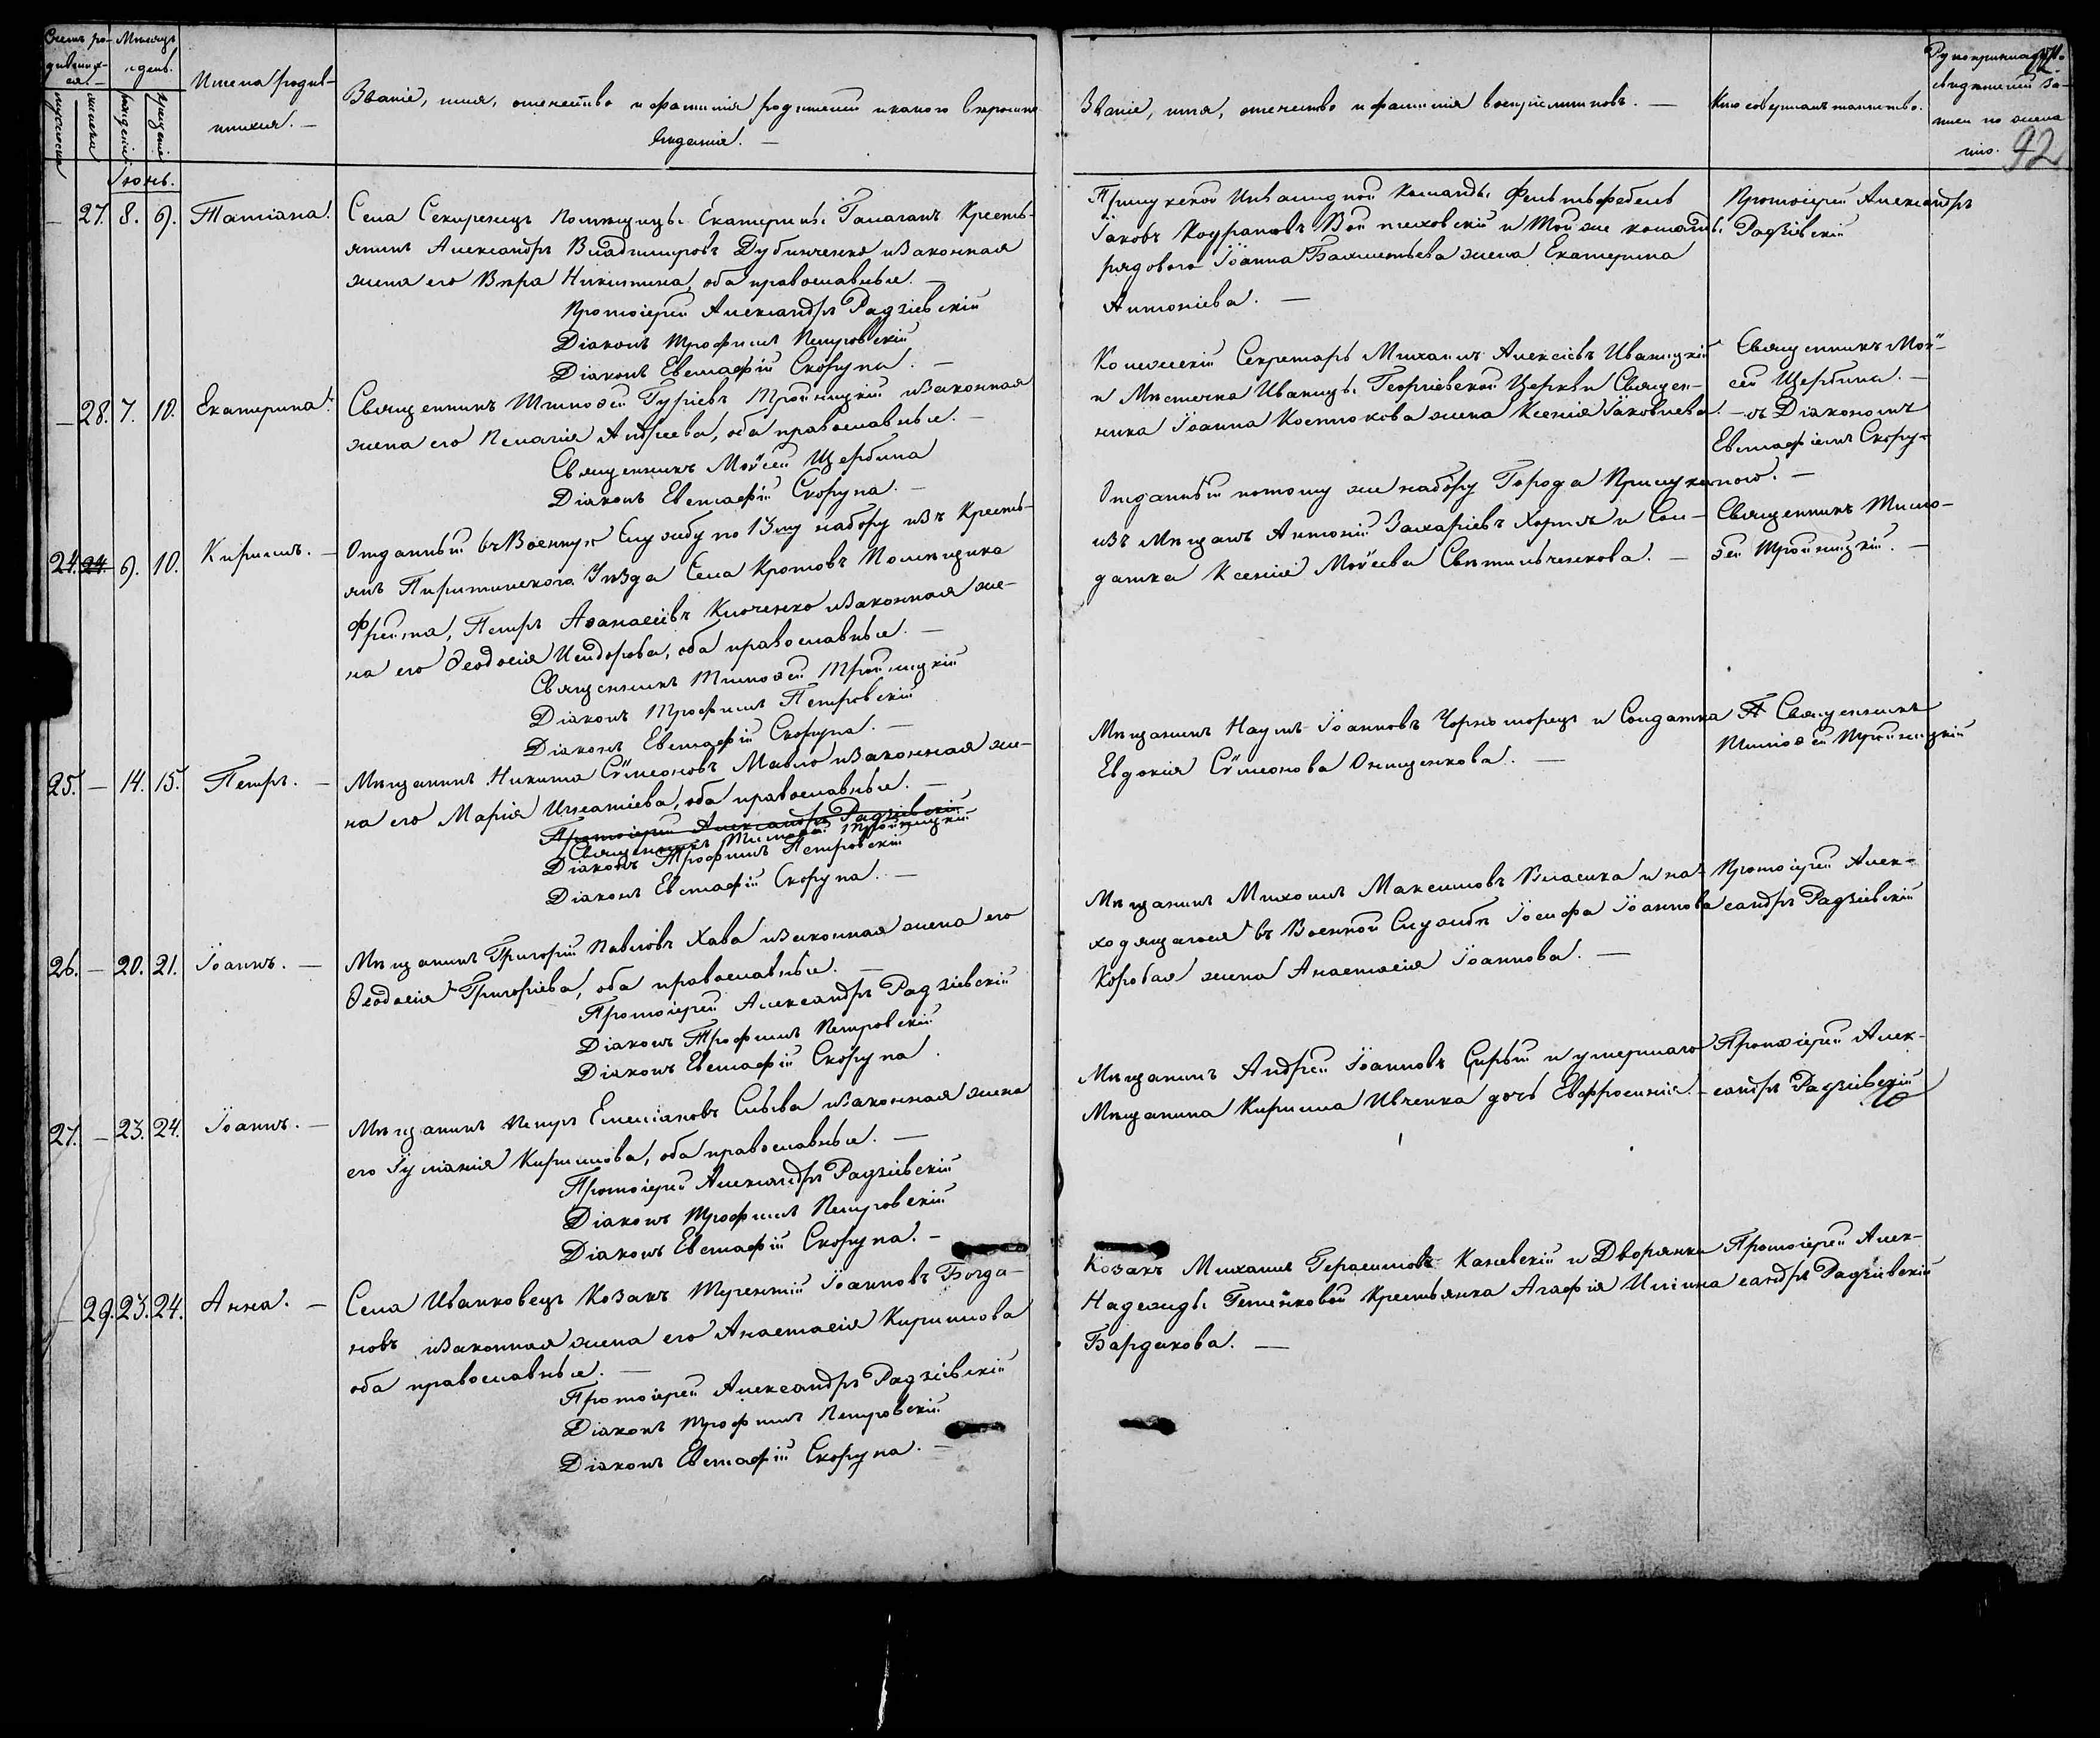 Счетъ ро-
дивших-
ся.
мужеска
женска
Мѣсяцъ
и день.
рожденія
крещенія
Имена родив-
шихся. —
Званіе, имя, отечество и фамилія родителей и какого вѣроиспо-
вѣданія. —
Званіе, имя, отечество и фамилія воспріемниковъ. —
Кто совершалъ таинство.
Рукоприкладство
свидѣтелей за-
писи по жела-
нію.
92
Іюнь.
— 27. 8. 9. Татіана.
Села Секиренецъ Помѣщицы Екатерины Галаганъ Кресть-
янинъ Александръ Владимировъ Дубинченко и законная
жена его Вѣра Никитина, оба православные. —
Протоіерей Александръ Радзіевскій
Діаконъ Трофимъ Петровскій
Діаконъ Евстафій Скорупа. —
Прилукской Инвалидной Команды Фельтфебель
Іаковъ Войцеховскій и Той же команды
рядового Іоанна Бахметьева жена Екатерина
Антоніева. —
Протоіерей Александръ
Радзіевскій
— 28. 7. 10. Екатерина.
Священникъ Тимоѳей Гуріевъ Тройницкій и законная
жена его Пелагія Андреева, оба православные. —
Священникъ Моѵсей Щербина
Діаконъ Евстафій Скорупа. —
Коллежскій Секретарь Михаилъ Алексіевъ Иваницкій
и Мѣстечка Иваницы Георгіевской Церкви Священ-
ника Іоанна Костюкова жена Ксенія Іаковлева. —
Священникъ Моѵ-
сей Щербина. —
съ Діакономъ
Евстафіемъ Скору-
пою. —
24. 24. 9. 10. Кириллъ. —
Отданный въ Военную Службу по 13му набору изъ Кресть-
янъ Пирятинского Уѣзда Села Кротовъ Помѣщика
Фрейта, Петръ Аѳанасіевъ Клоченко и законная же-
на его Ѳеодосія Исидорова, оба православные. —
Священникъ Тимоѳей Тройницкій
Діаконъ Трофимъ Петровскій
Діаконъ Евстафій Скорупа. —
Отданный потому же набору Города Прилукъ
изъ Мѣщанъ Антоній Захаріевъ Хорть и Сол-
датка Ксенія Моѵсеева Свѣтильченкова. —
Священникъ Тимо-
ѳей Тройницкій. —
25. — 14. 15. Петръ. —
Мѣщанинъ Никита Сѵмеоновъ Мавло и законная же-
на его Марія Игнатіева, оба православные. —
Протоіерей Александръ Радзіевскій
Священникъ Тимоѳей Тройницкій
Діаконъ Трофимъ Петровскій
Діаконъ Евстафій Скорупа. —
Мѣщанинъ Наумъ Іоанновъ Чорноморецъ и Солдатка
Евдокія Сѵмеонова Онищенкова. —
Священникъ
Тимоѳей Тройницкій
26. — 20. 21. Іоаннъ. —
Мѣщанинъ Григорій Павловъ Хава и законная жена его
Ѳеодосія Григоріева, оба православные. —
Протоіерей Александръ Радзіевскій
Діаконъ Трофимъ Петровскій
Діаконъ Евстафій Скорупа.
Мѣщанинъ Михаилъ Максимовъ Власка и на-
ходящагося въ Военной Службѣ Іосифа Іоаннова
Коробая жена Анастасія Іоаннова. —
Протоіерей Алек-
сандръ Радзіевскій
27. — 23. 24. Іоаннъ. —
Мѣщанинъ Петръ Емеліановъ Сльва и законная жена
его Іуліанія Кириллова, оба православные. —
Протоіерей Александръ Радзіевскій
Діаконъ Трофимъ Петровскій
Діаконъ Евстафій Скорупа. —
Мѣщанинъ Андрей Іоанновъ Сирый и умершаго
Мѣщанина Кирилла Ивченка дочь Евфросинія. —
Протоіерей Алек-
сандръ Радзіевскій
— 29. 23. 24. Анна. —
Села Иванковецъ Козакъ Терентій Іоанновъ Богда-
новъ и законная жена его Анастасія Кириллова
оба православные. —
Протоіерей Александръ Радзіевскій
Діаконъ Трофимъ Петровскій
Діаконъ Евстафій Скорупа. —
Козакъ Михаилъ Герасимовъ Каневскій и Дворянки
Надежды Крестьянка Агафія Иліина
Бардакова. —
Протоіерей Алек-
сандръ Радзіевскій